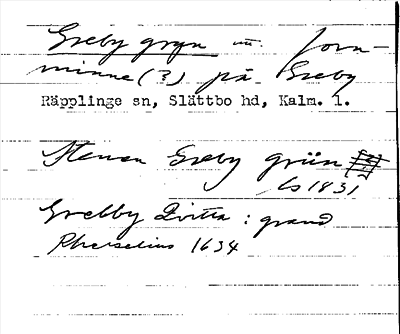 Greby gryn m. forn-
minne (?) på Greby
Räpplinge sn, Slättbo hd, Kalm. l.
Stenen Greby grün
Ls 1831
Grebby : grand
Rhezelius 1634